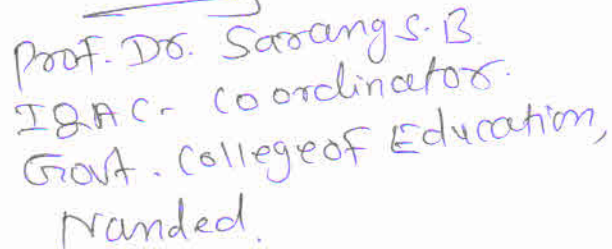 Prof. Dr. Sarang S.B.
IQAC- Coordinator.
Govt. College of Education,
Nanded.